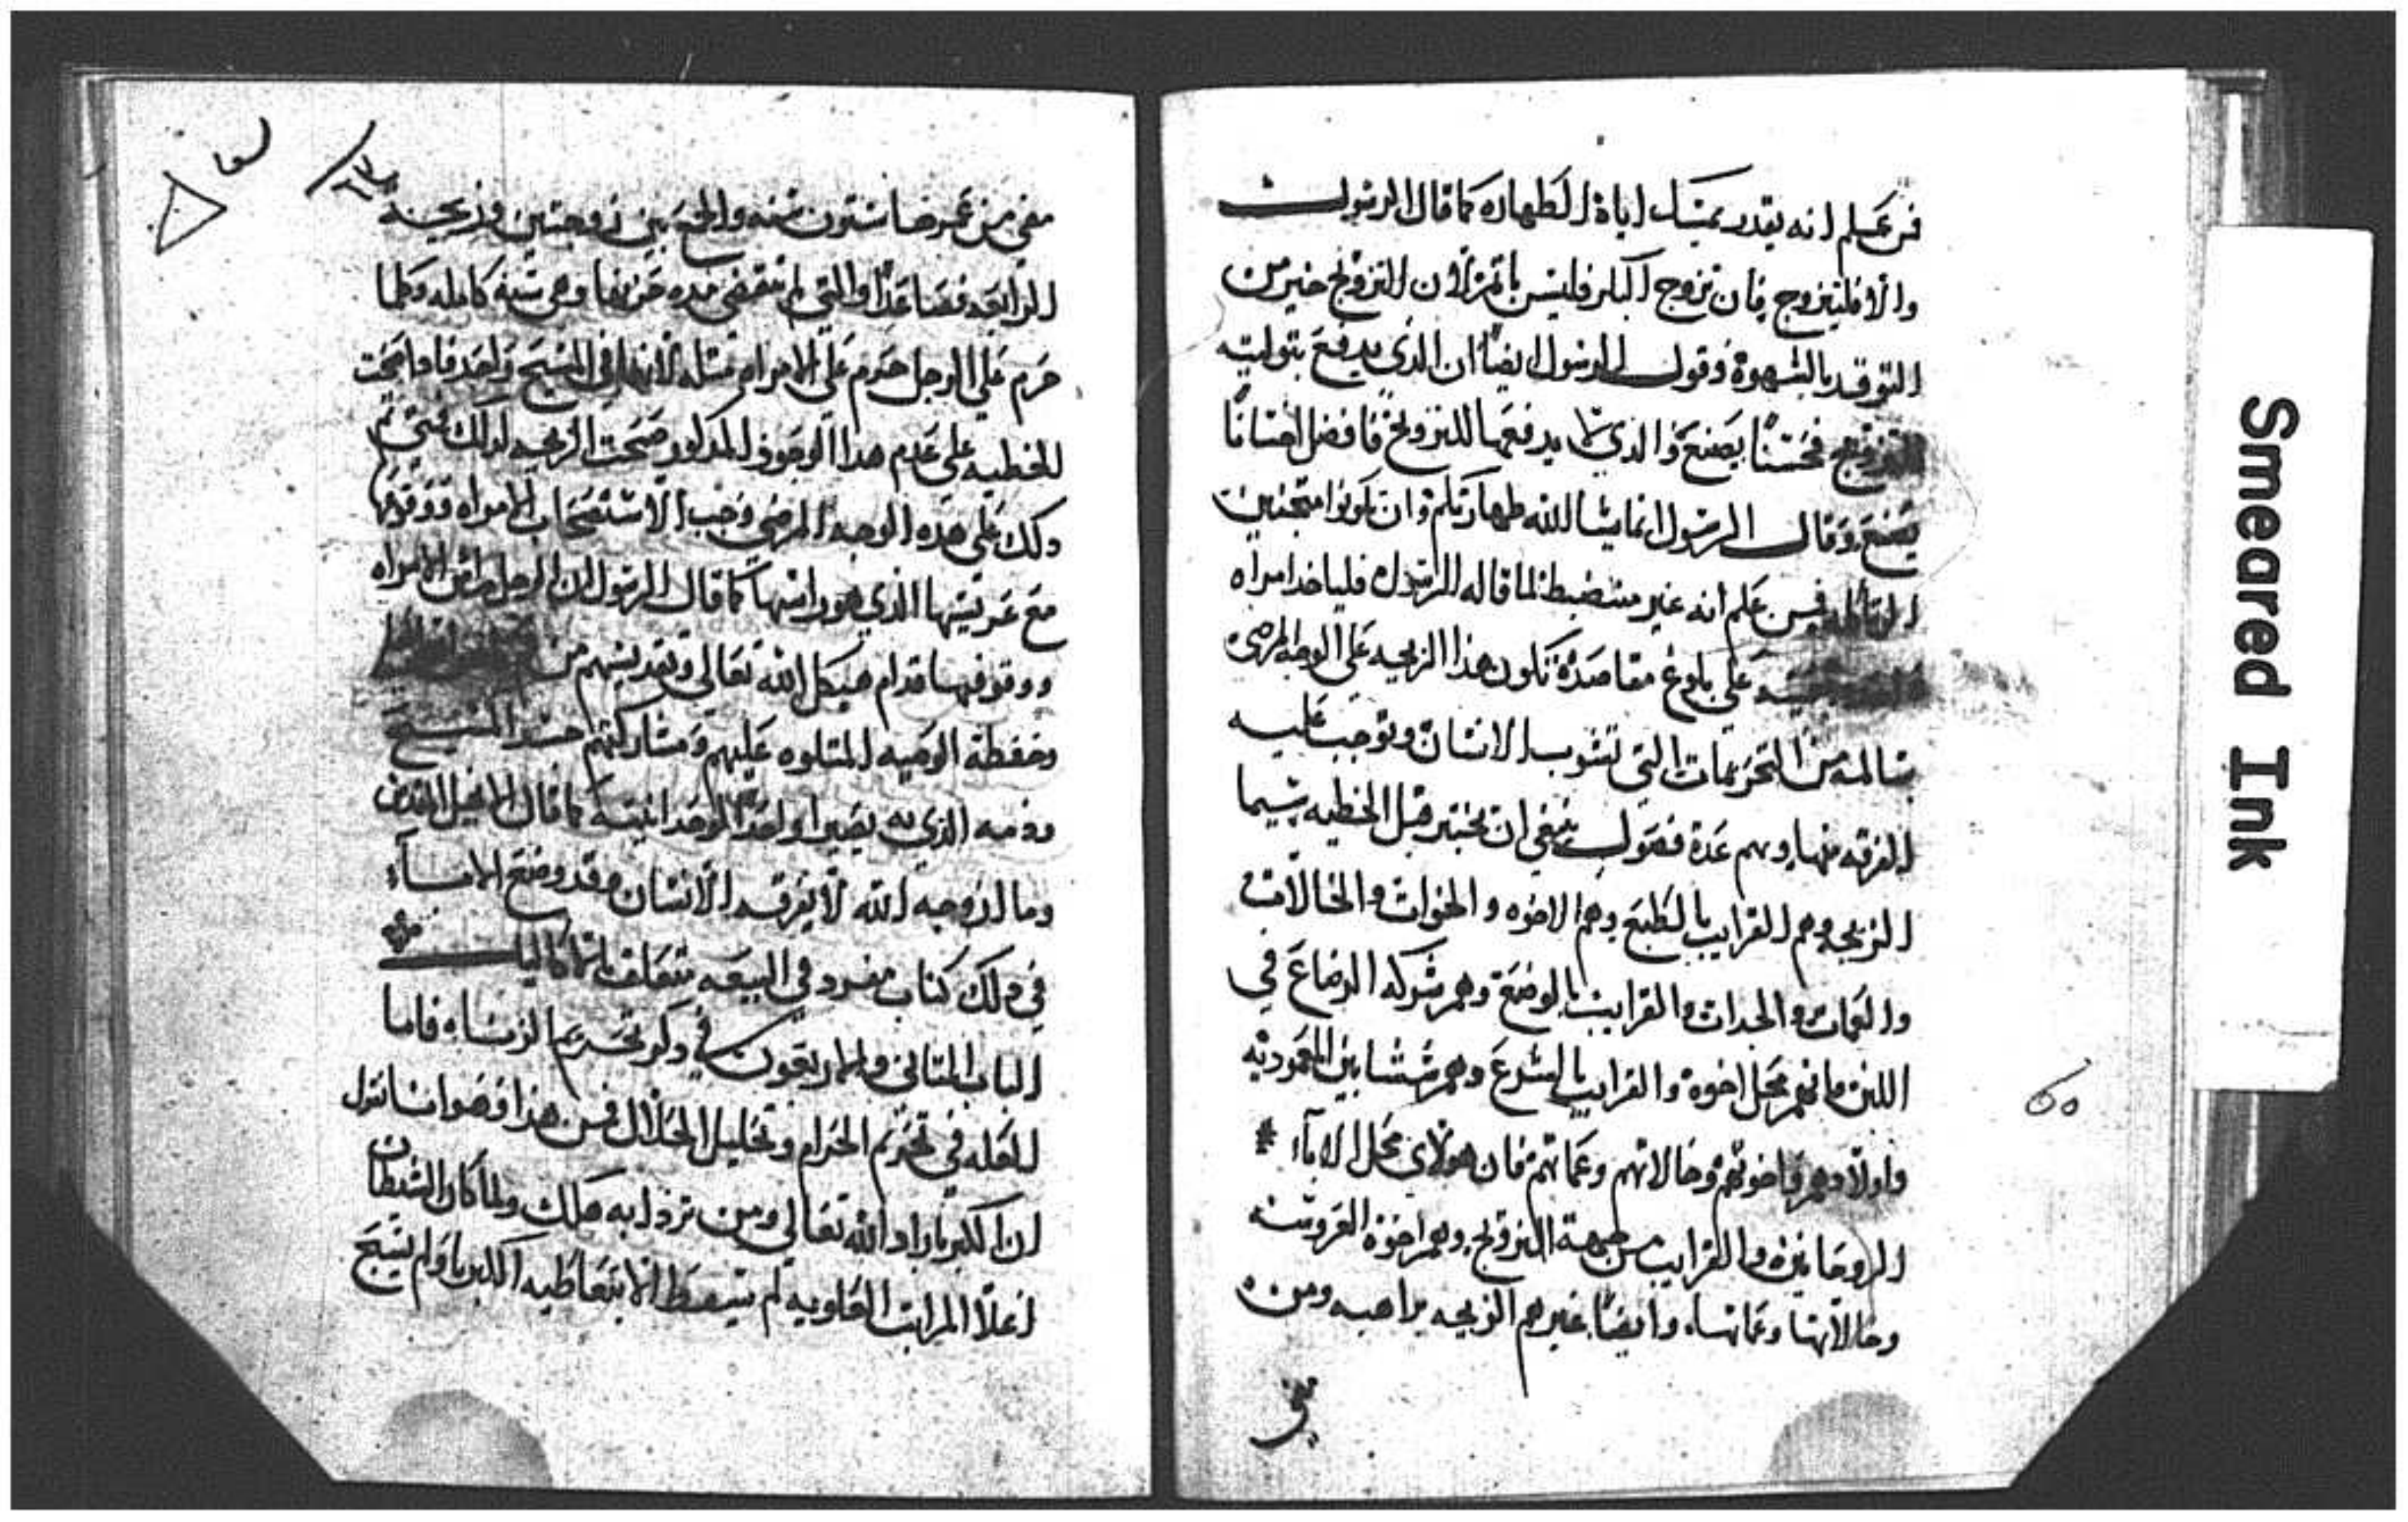 فمن علم انه يقدر يمسك اياة الطهاره كما قال الرسول
والا فليتزوج فان تزوج البكر فليس ياثم لان التزويج خير من
التوقد بالشهوة وقول الرسول ايضًا ان الذي يدفع بتوليته
للتزويج فحسنًا يصنع والذي لا يدفعها للتزويج فافضل احسانًا
يصنع وقال الرسول انما يشا الله طهارتكم وان تكونوا متجنبين
الزنا فمن علم انه غير منضبط لما قاله الرسول فلياخد امراه
على بلوغ مقاصدة تكون هذا الزيجه على الوجه المرضي
سالمه من التحريمات التي تشوب الانسان وتوجب عليه
الفرقه منها وهم عدة فصول ينبغي ان تختبر قبل الخطيه سيما
الزيجه وهم القرايب بالطبع وهم الاخوه والخوات والخالات
والعمات والجدات والقرايب بالوضع وهم شركه الرضاع في
اللبن فانهم محل اخوة والقرايب بالشرع وهم شبشابين المعموديه
واولادهم واخوتهم وخالاتهم وعماتهم فان هولاي محل الابآء *
الروحانيين والقرايب من جهة التزويج وهم اخوة العروسه
وخالاتها وعماتها، وايضًا غيرهم الزيجه براهبه ومن
مضي
60
Smeared Ink
مضي من عمرها ستون سنه والجمع بين زوجتين وزيجة
الرابعه فصاعدًا والتي لم تنقضي مده حزنها وهي سنة كامله وكلما
حرم على الرجل حرم على الامراه مثله لانهما في المسيح واحد فاد اصحت
للخطيه على عدم هدا الوجوه المدكور صحت الزيجه لدلك فمتى تم
دلك على هده الوجه المرضي وجب الاستصحاب الامراه ووقوفها
مع عريسها الذي هو راسها كما قال الرسول ان الرجل راس الامراه
ووقوفهما قدام هيكل الله تعالى وتقديسهم من
وحفظة الوصيه المتلوه عليهم ومشاركتهم جسد المسيح
ودمه الذي به يصيرا واحدًا لوحدانيته كما قال الانجيل المقدس
وما ازوجه الله لا يفرقه الانسان وقد وضع الابآء
في دلك كتاب مفرد في البيعه متعلق بالاكاليل
الباب التاني والاربعون في دكر تحريم الزنا، فاما
العله في تحريم الحرام وتحليل الحلال فمن هذا وضوانا نقول
ان الكبريا ردا الله تعالى ومن تردا به هلك ولما كان الشيطان
اعلا المراتب العلويه لم يسقط الا بتعاطيه الكبريا ولم يسبح